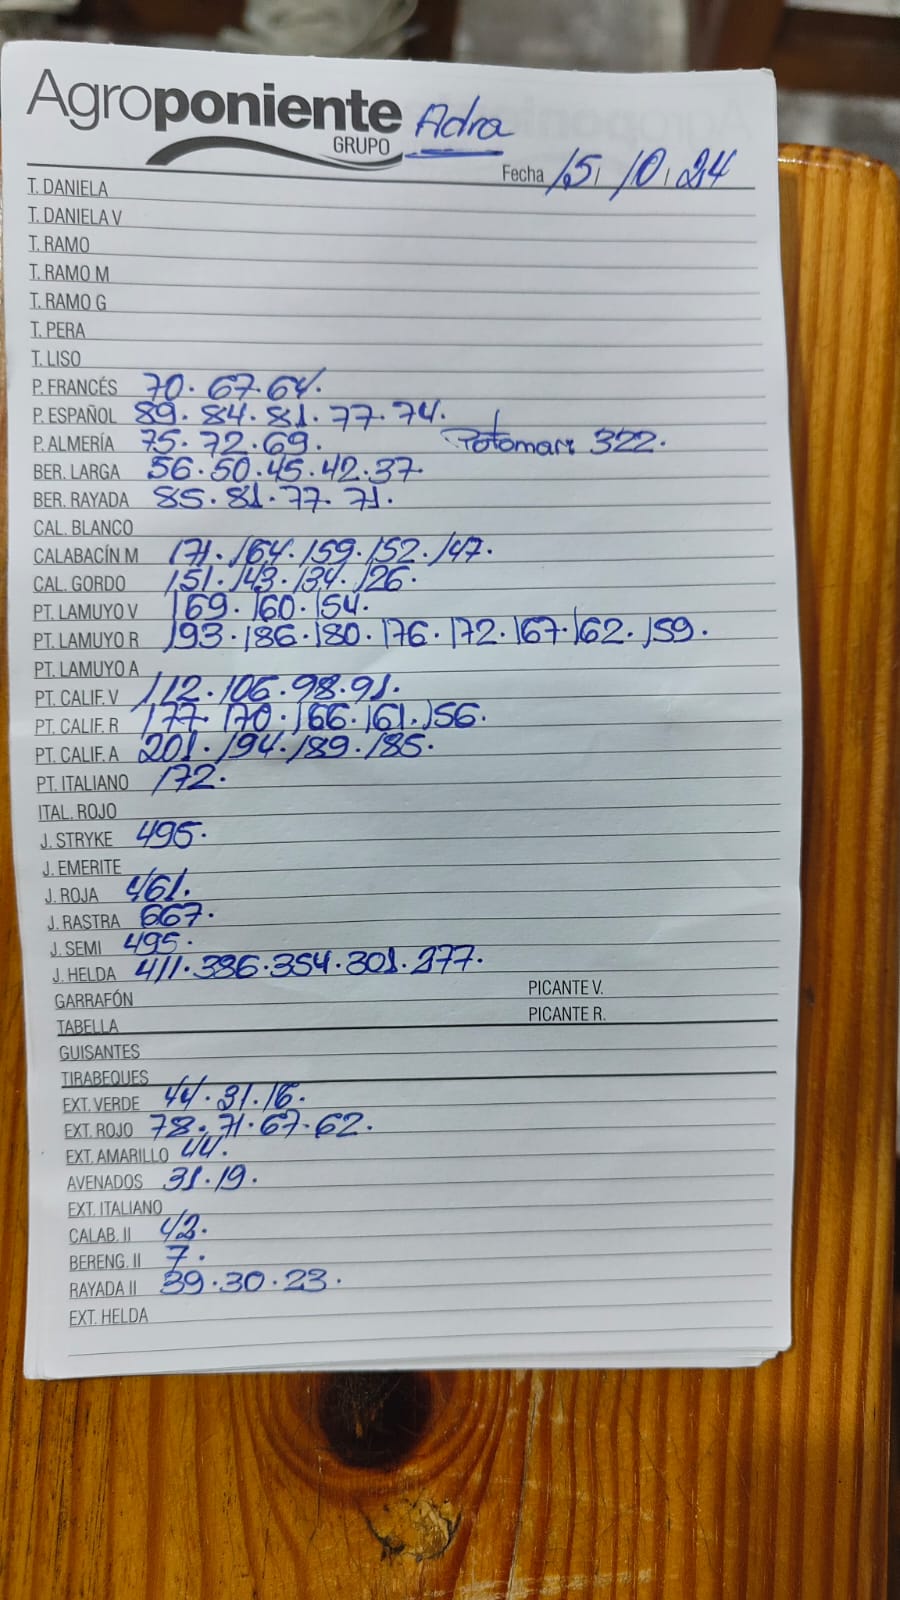 Agroponiente Adra
GRUPO
Fecha 15, 10, 24
T. DANIELA
T. DANIELA V
T. RAMO
T. RAMO M
T. RAMO G
T. PERA
T. LISO
P. FRANCÉS 70. 67. 64.
P. ESPAÑOL 89. 84. 81. 77. 74.
P. ALMERÍA 75. 72. 69. Potomari 322.
BER. LARGA 56. 50. 45. 42. 37.
BER. RAYADA 85. 81. 77. 71.
CAL. BLANCO
CALABACÍN M 171. 164. 159. 152. 147.
CAL. GORDO 151. 143. 134. 126.
PT. LAMUYO V 169. 160. 154.
PT. LAMUYO R 193. 186. 180. 176. 172. 167. 162. 159.
PT. LAMUYO A
PT. CALIF. V 112. 106. 98. 91.
PT. CALIF. R 177. 170. 166. 161. 156.
PT. CALIF. A 201. 194. 189. 185.
PT. ITALIANO 172.
ITAL. ROJO
J. STRYKE 495.
J. EMERITE
J. ROJA 461.
J. RASTRA 667.
J. SEMI 495.
J. HELDA 411. 386. 354. 301. 277.
GARRAFÓN PICANTE V.
TABELLA PICANTE R.
GUISANTES
TIRABEQUES
EXT. VERDE 44. 31. 16.
EXT. ROJO 78. 71. 67. 62.
EXT. AMARILLO 44.
AVENADOS 31. 19.
EXT. ITALIANO
CALAB. II 42.
BERENG. II 7.
RAYADA II 39. 30. 23.
EXT. HELDA